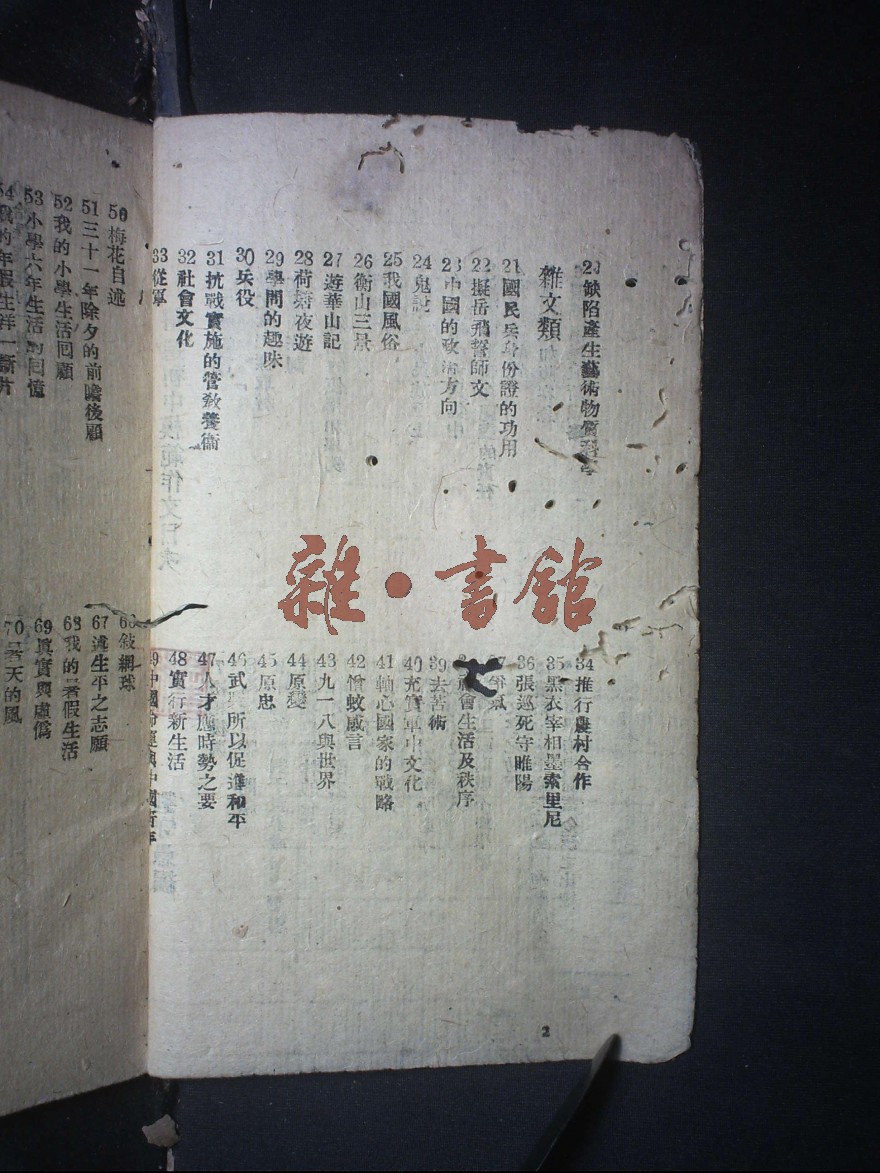 20缺陷產生藝術物質科學
雜文類
21國民兵身份證的功用
22擬岳飛誓師文
23中國的政治方向
24鬼說
25我國風俗
26衡山三景
27遊華山記
28荷塘夜遊
29學問的趣味
30兵役
31抗戰實施的管教養衞
32社會文化
33從軍
34推行農村合作
35黑衣宰相墨索里尼
36張巡死守睢陽
37
社會生活及秩序
39去苦術
40充實軍中文化
41軸心國家的戰略
42憎蚊感言
43九一八與世界
44原變
45原忠
46武 所以促進和平
47人才應時勢之要
48實行新生活
49中國命運與中國青年
50梅花自述
51三十一年除夕的前瞻後顧
52我的小學生活回顧
53小學六年生活的回憶
54我的年假生活一斷片
66敍網球
67述生平之志願
68我的暑假生活
69眞實與虛僞
70 天的風
2
雜·書館